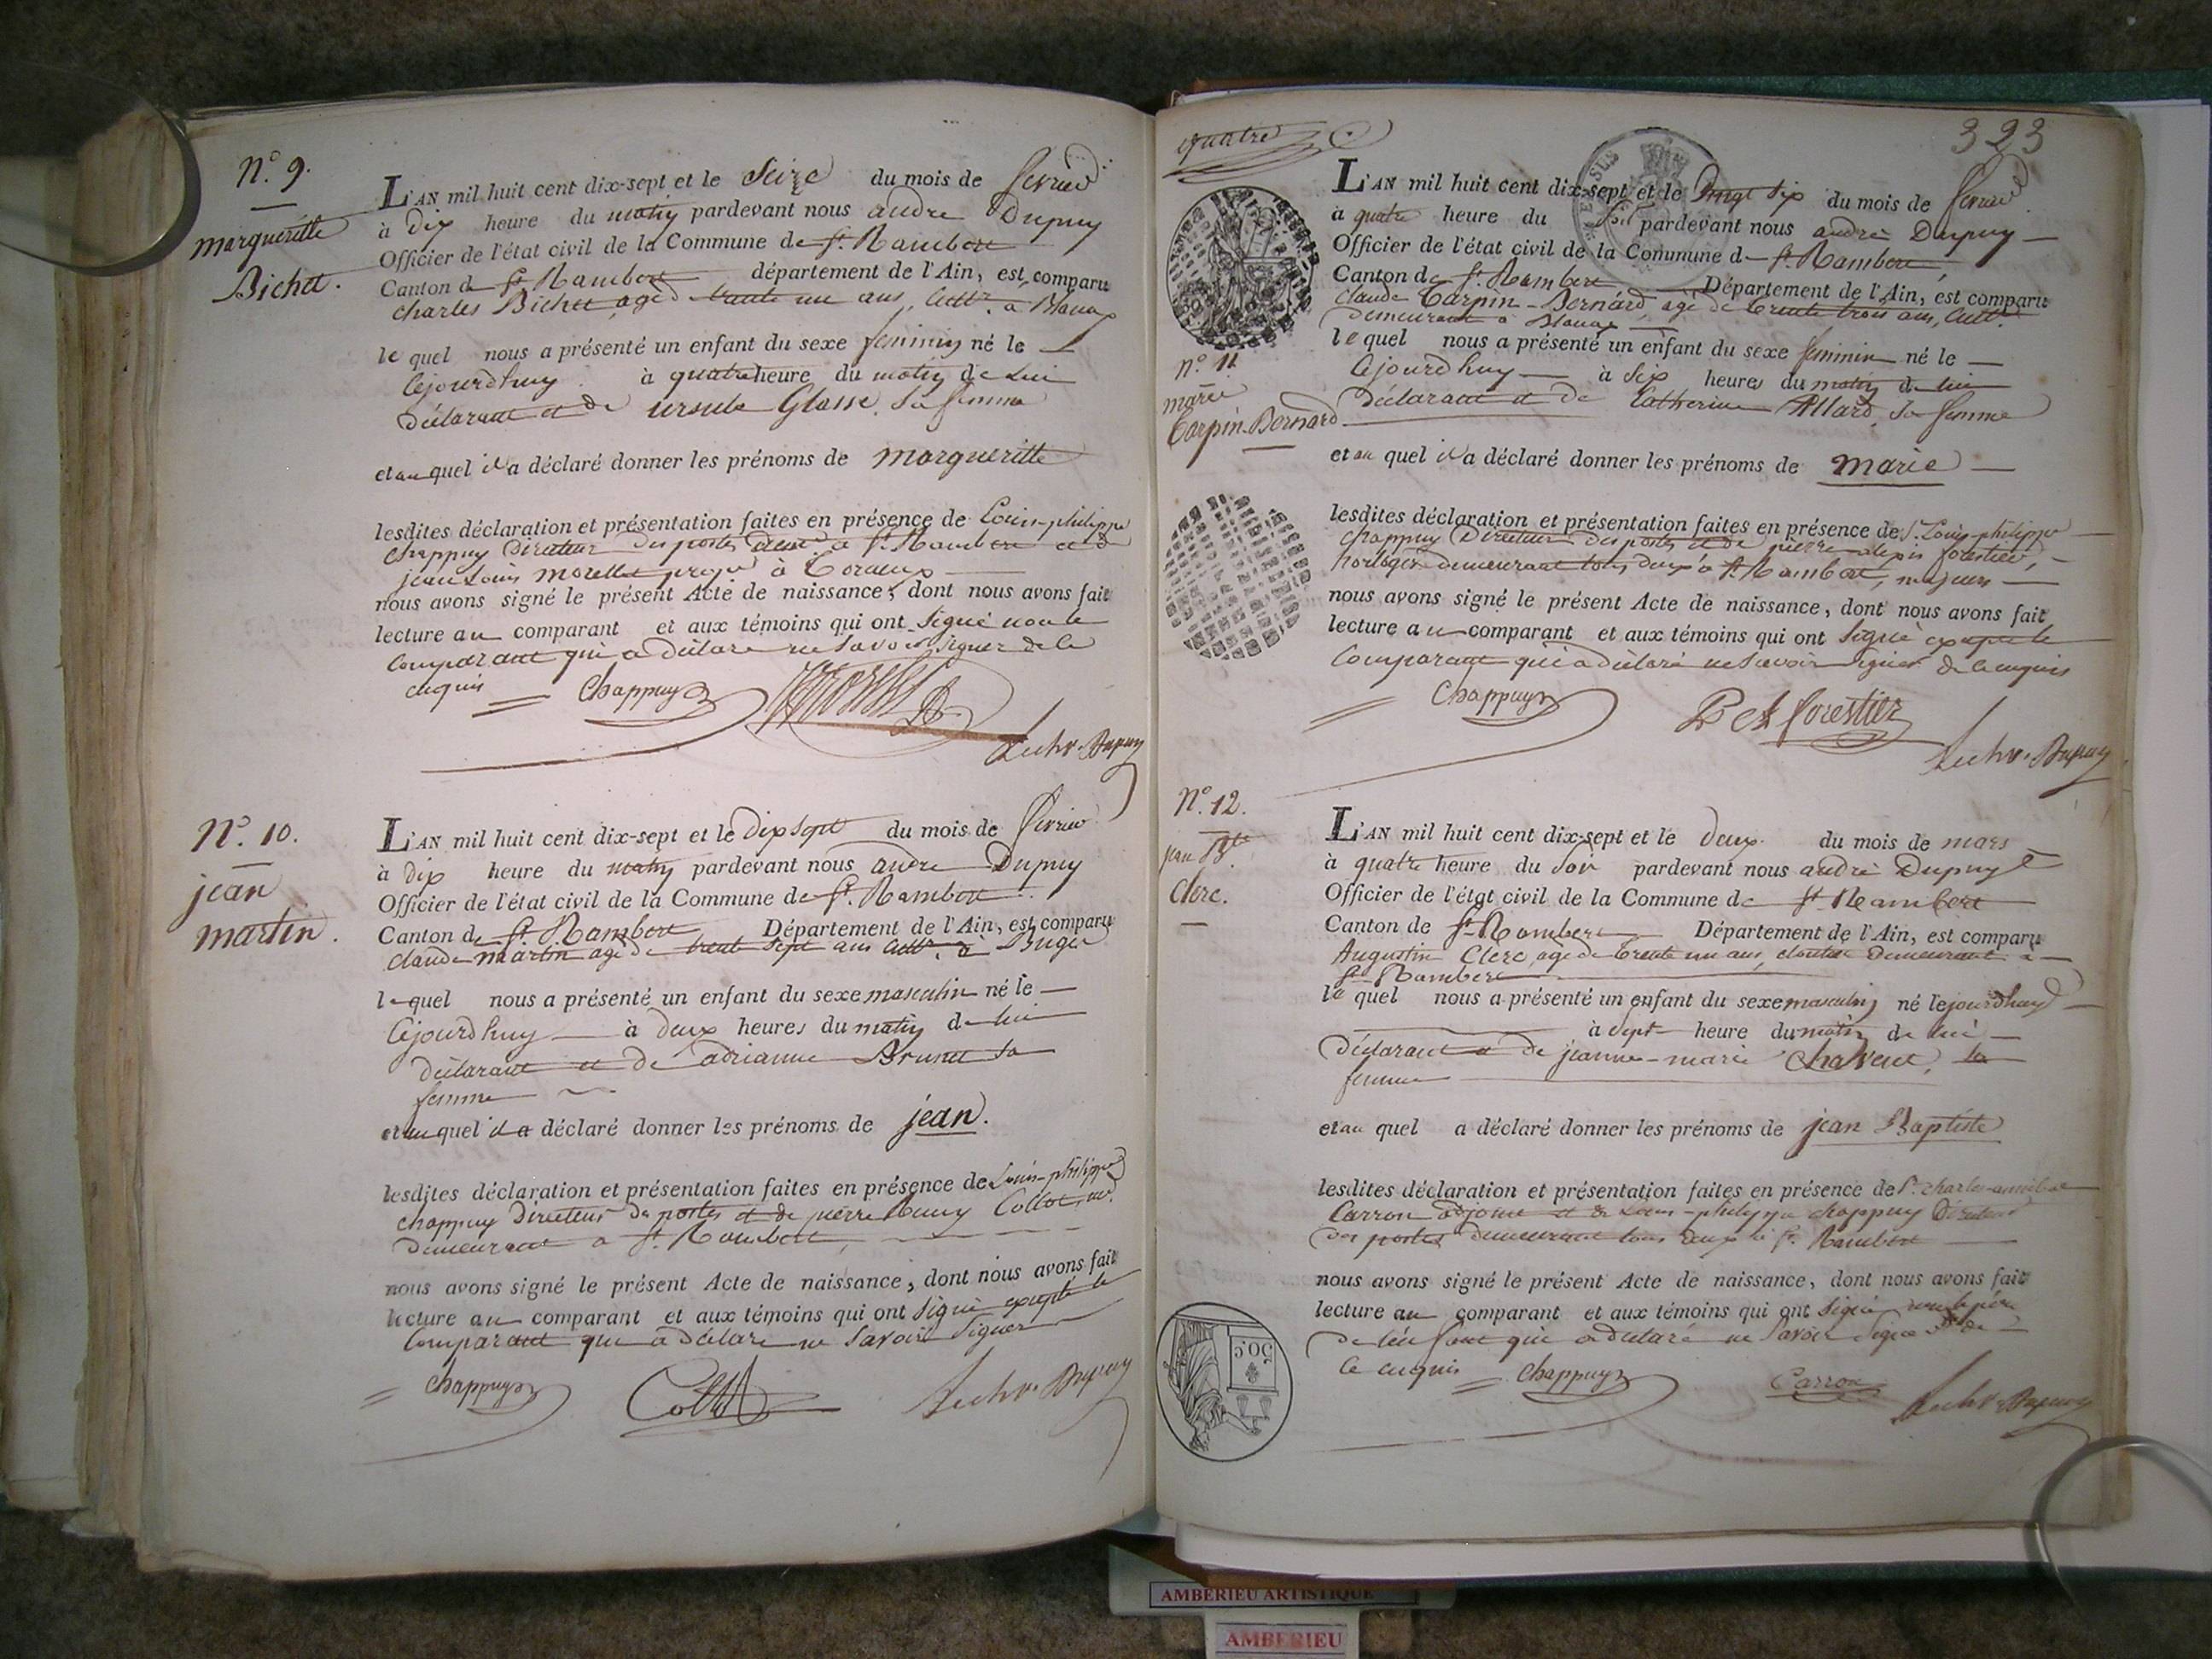 N.o 9.
margueritte
Bichet.
L'AN mil huit cent dix-sept et le Seize du mois de fevrier
à dix heure du matin pardevant nous andre Dupuy
Officier de l'état civil de la Commune de St. Rambert
Canton de St Rambert département de l'Ain, est comparu
charles Bichet agé de trente un ans, cultr. à Blanaz
le quel nous a présenté un enfant du sexe feminin né le
cejourdhuy à quatre heure du matin de lui
déclarant et de ursule Glasse sa femme
et au quel il a déclaré donner les prénoms de margueritte
lesdites déclaration et présentation faites en présence de Louis-philippe
chappuy Directeur des postes demt. a St. Rambert et de
jean Louis morellet à Torcieux
nous avons signé le présent Acte de naissance, dont nous avons fait
lecture au comparant et aux témoins qui ont signé non le
comparant qui a déclaré ne savoir signer de ce
enquis
Chappuy
Lechr. Dupuy
N.o 10.
jean
martin.
L'AN mil huit cent dix-sept et le dix sept du mois de fevrier
à dix heure du matin pardevant nous andre Dupuy
Officier de l'état civil de la Commune de St. Rambert
Canton de St. Rambert Département de l'Ain, est comparu
claude martin agé de trente sept ans cultr. à Buges
le quel nous a présenté un enfant du sexe masculin né le
cejourdhuy à deux heures du matin de lui
déclarant et de adrianne Brunet sa
femme
et au quel il a déclaré donner les prénoms de jean.
lesdites déclaration et présentation faites en présence de Louis-philippe
chappuy Directeur de postes et de pierre Collot
demeurant a St. Rambert,
nous avons signé le présent Acte de naissance, dont nous avons fait
lecture au comparant et aux témoins qui ont signé excepté le
comparant qui a déclaré ne savoir signer
chappuy
Collot
Lechr. Dupuy
quatre
323
L'AN mil huit cent dix-sept et le vingt six du mois de fevrier
à quatre heure du soir pardevant nous andré Dupuy
Officier de l'état civil de la Commune de St. Rambert
Canton de St. Rambert Département de l'Ain, est comparu
claude Carpin-Bernard, agé de trente trois ans, cultr.
demeurant à Blanaz
n.o 11
marie
Carpin-Bernard
le quel nous a présenté un enfant du sexe feminin né le
cejourdhuy à six heures du matin de lui
déclarant et de Catherine Allard, sa femme
et au quel il a déclaré donner les prénoms de marie
lesdites déclaration et présentation faites en présence de Sr. Louis-philippe
chappuy Directeur des postes et de pierre alexis forestier,
horloger demeurant tous deux a St. Rambert, majeurs
nous avons signé le présent Acte de naissance, dont nous avons fait
lecture au comparant et aux témoins qui ont signé excepté le
comparant qui a déclaré ne savoir signer de ce enquis
Chappuy
forestier
Lechr. Dupuy
N.o 12.
jean Bte
Clerc.
L'AN mil huit cent dix-sept et le deux du mois de mars
à quatre heure du soir pardevant nous andré Dupuy
Officier de l'état civil de la Commune de St. Rambert
Canton de St. Rambert Département de l'Ain, est comparu
Augustin Clerc, agé de trente un ans, cloutier demeurant a
St. Rambert
le quel nous a présenté un enfant du sexe masculin né lejourdhuy
à sept heure du matin de lui
déclarant et de jeanne-marie Chavent, sa
femme
et au quel a déclaré donner les prénoms de jean Baptiste
lesdites déclaration et présentation faites en présence de Sr. charles-annibal
Carron adjoint et de Louis-philippe chappuy Directeur
des postes demeurant tous deux à St. Rambert
nous avons signé le présent Acte de naissance, dont nous avons fait
lecture au comparant et aux témoins qui ont signé, non le père
de l'enfant qui a déclaré ne savoir signer de
ce enquis
Chappuy
Carron
Lechr. Dupuy
50c
AMBERIEU ARTISTIQUE
AMBERIEU